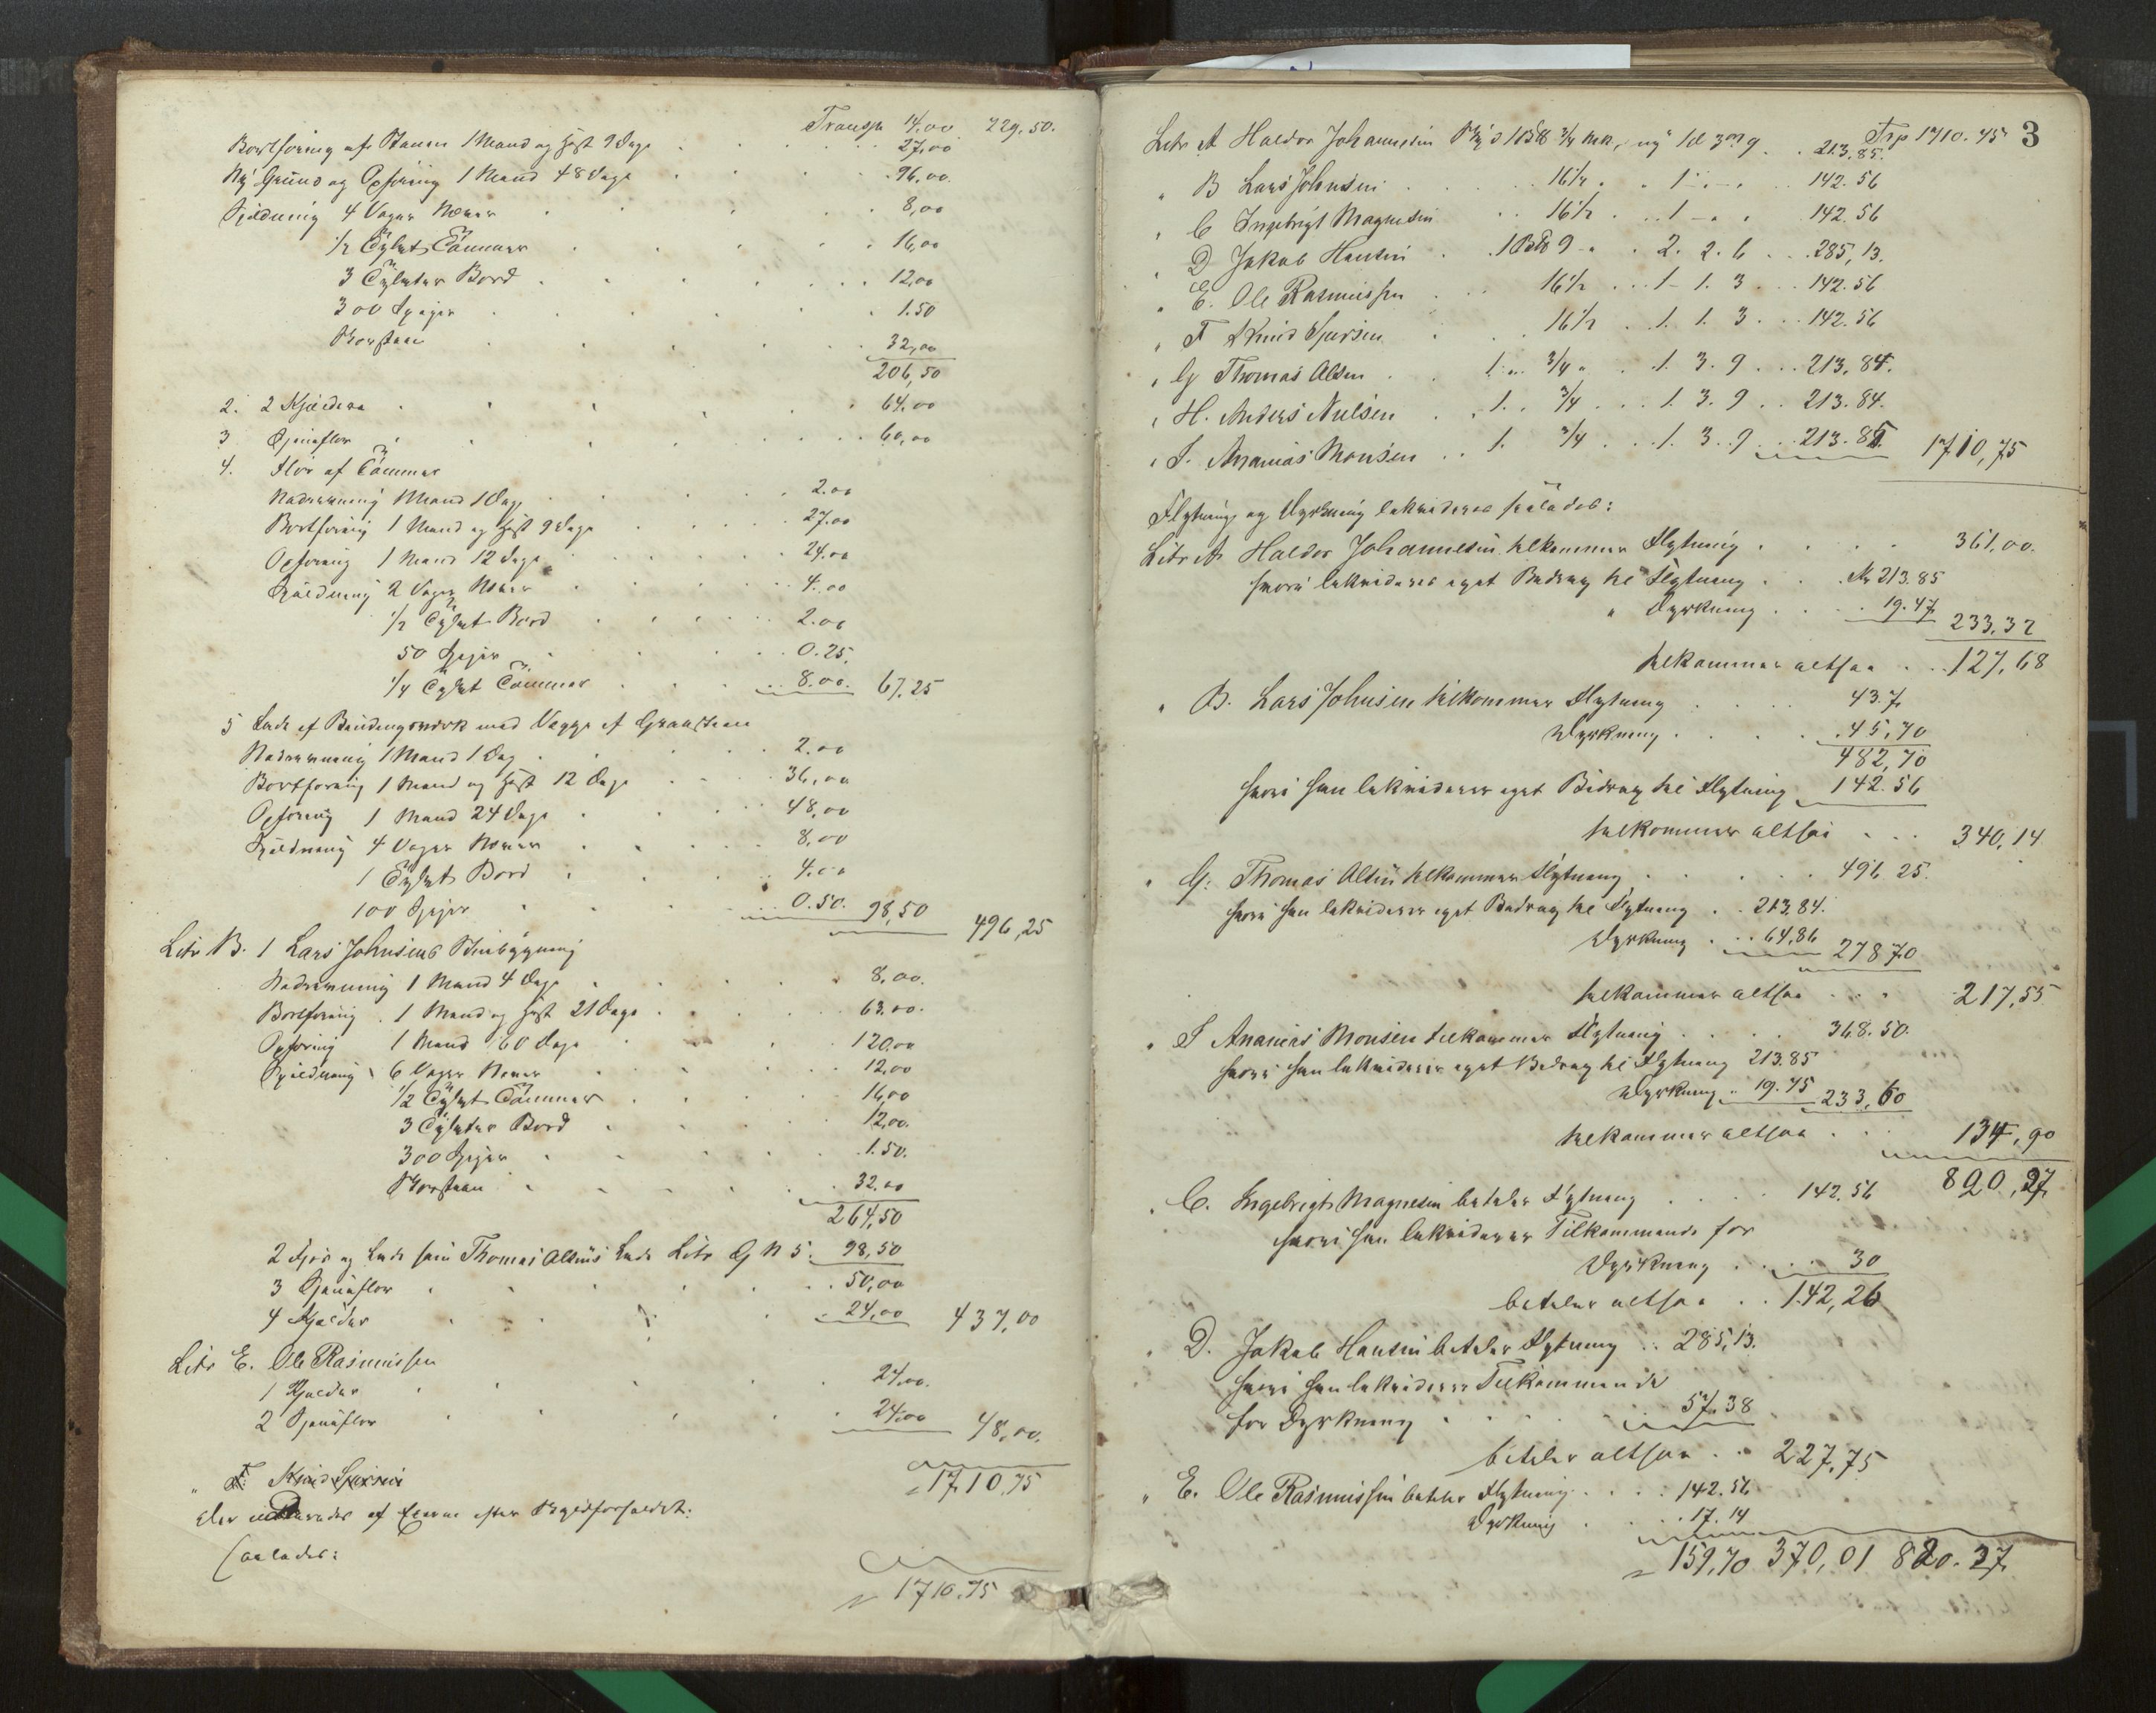 Transp 14.00 729.50.
Bortføring af Stenen 1 Mand og Hest 9 Dage 27,00
Ny Grund og Opføring 1 Mand 48 Dage 96,00.
Spildning 4 Vager Never 8,00
1/2 Tylvt Tømmer 16,00
3 Tylvter Bord 12,00
300 Spiger 1.50
Skorsteen 32,00
206,50
2. 2 Kjældere 64.00
3 60,00
4. Flor af Tømmer
Nedrivning 1 Mand 1 Dag 2.00
Bortføring 1 Mand og Hest 9 Dage 27.00
Opføring 1 Mand 12 Dage 24.00
Spildning 2 Vager Never 4.00
1/2 Tylvt Bord 2.00
50 Spiger 0.25.
1/4 Tylvt Tømmer 8.00. 67.25
5 Lade af Bindingsværk med Vegge af Graasteen
Nedrivning 1 Mand 1 Dag 2.00
Bortføring 1 Mand og Hest 12 Dage 36,00
Opføring 1 Mand 24 Dage 48,00
Spildning 4 Vager Never 8,00
1 Tylvt Bord 4.00
100 Spiger 0.50. 98,50 496,25
Litr B. 1 Lars Johnsens
Nedrivning 1 Mand 4 Dage 8,00.
Bortføring 1 Mand og Hest 21 Dage 63.00.
Opføring 1 Mand 60 Dage 120.00
Spildning 6 Vager Never 12,00
1/2 Tylvt Tømmer 16,00
3 Tylvter Bord 12,00.
300 Spiger 1.50.
Skorsteen 32.00
264,50
2 Flor og Lade som Thomas Alsens Lade Litr G N 5. 98,50
3 50,00
4 Kjælder 24,00 437,00
Litr E. Ole Rasmussen
1 Kjælder 24,00.
2 24.00 48,00.
1710.75
" F. Knud
Der udredes af Eierne efter Skyldforholdet:
saaledes:
1710.75
3
Trp 1710.75
Litr A Haldor Johannesen 213.85.
" B Lars Johnsen 16 1/2 1 - - 142.56
" C Ingebrigt Magnesen 16 1/2 1 - 142.56
" D Jakob Hansen 2. 2. 6 285,13.
" E. Ole Rasmussen 16 1/2 1 - 1. 3 142.56
" F Knud 16 1/2 1. 1. 3 142.56
" G Thomas Alsen 1. " 3/4 " 1. 3. 9 213.84.
" H. Anders Nielsen 1. 3/4 1. 3. 9 213.84.
" I. Ananias Monsen 1. 3/4 1. 3. 9 213.85. 1710,75
Flytning og Dyrkning likvideres saaledes:
Litr A Haldor Johannesen tilkommer Flytning 361,00.
hvori likvideres eget Bidrag til Flytning 213.85
" Dyrkning 19.47 233,32
tilkommer altsaa 127,68
" B. Lars Johnsen tilkommer Flytning 437,
Dyrkning 45,70
482,70
hvori han likviderer eget Bidrag til Flytning 142.56
tilkommer altsaa 340,14
" G. Thomas Alsen tilkommer Flytning 496 25.
hvori han likviderer eget Bidrag til Flytning 213,84.
Dyrkning 64,86 278 70
tilkommer altsaa 217,55
" I Ananias Monsen tilkommer Flytning 368.50.
hvori han likviderer eget Bidrag til Flytning 213.85
Dyrkning 19.75 233,60
tilkommer altsaa 134,90
820,27
" C. Ingebrigt Magnesen betaler Flytning 142.56
hvori han likviderer Tilkommende for
Dyrkning 30
betaler altsaa 142,26
" D. Jakob Hansen betaler Flytning 285,13.
hvori han likviderer Tilkommende
for Dyrkning 57.38
betaler altsaa 227,75
" E. Ole Rasmussen betaler Flytning 142.56
Dyrkning 17.14
159,70 370,01 820.27